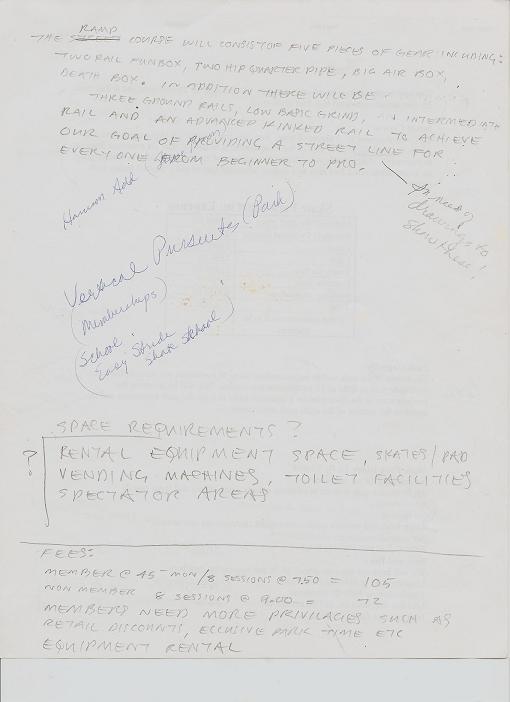 RAMP
THE STREET COURSE WILL CONSIST OF FIVE PIECES OF GEAR INCLUDING:
TWO RAIL FUNBOX, TWO HIP QUARTER PIPE, BIG AIR BOX,
DEATH BOX. IN ADDITION THERE WILL BE
THREE GROUND RAILS, LOW BASIC GRIND, AN INTERMEDIATE
RAIL AND AN ADVANCED KINKED RAIL TO ACHIEVE
OUR GOAL OF PROVIDING A STREET LINE FOR
EVERYONE FROM BEGINNER TO PRO.
In need of
drawings to
show these!
Harrison Add
Vertical Pursuits (Park)
(Memberships)
School:
Easy Stride
Skate School)
SPACE REQUIREMENTS?
? RENTAL EQUIPMENT SPACE, SKATES/PAD
VENDING MACHINES, TOILET FACILITIES
SPECTATOR AREAS
FEES:
MEMBER @ 45- MON/8 SESSIONS @ 7.50 = 105
NON MEMBER 8 SESSIONS @ 9.00 = 72
MEMBERS NEED MORE PRIVILAGES SUCH AS
RETAIL DISCOUNTS, ECCLUSIVE PARK TIME ETC
EQUIPMENT RENTAL